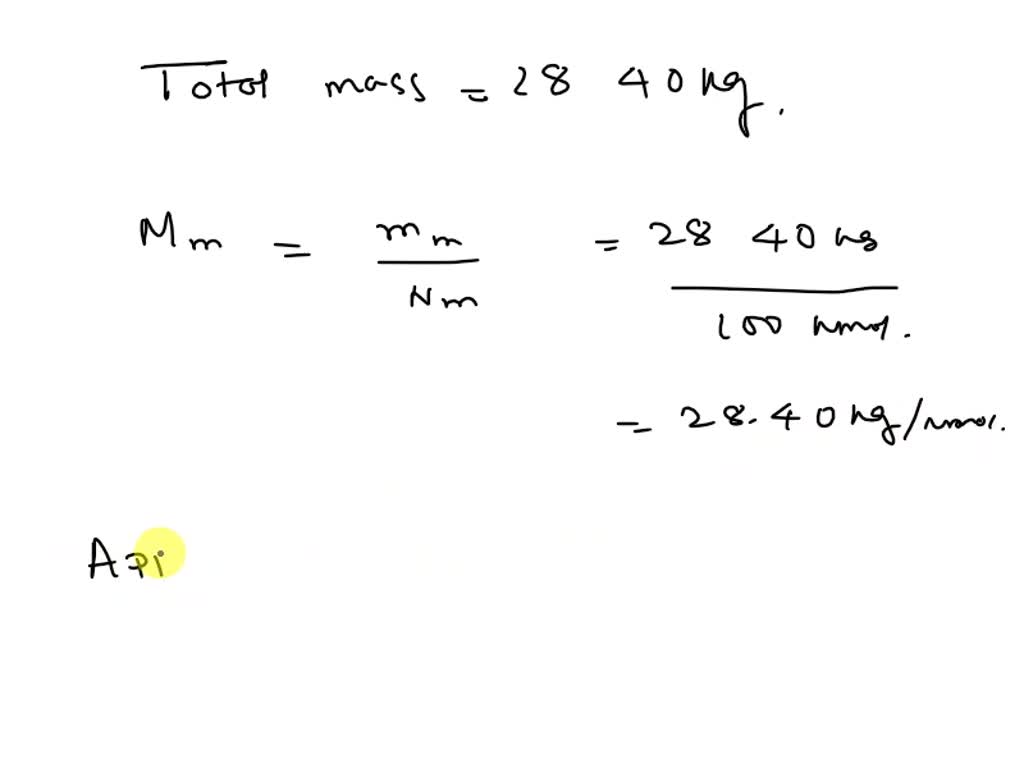 Total mass = 28 40 kg.
Mm = mm / Nm = 28 40 kg / 100 kmol.
= 28.40 kg/kmol.
Api